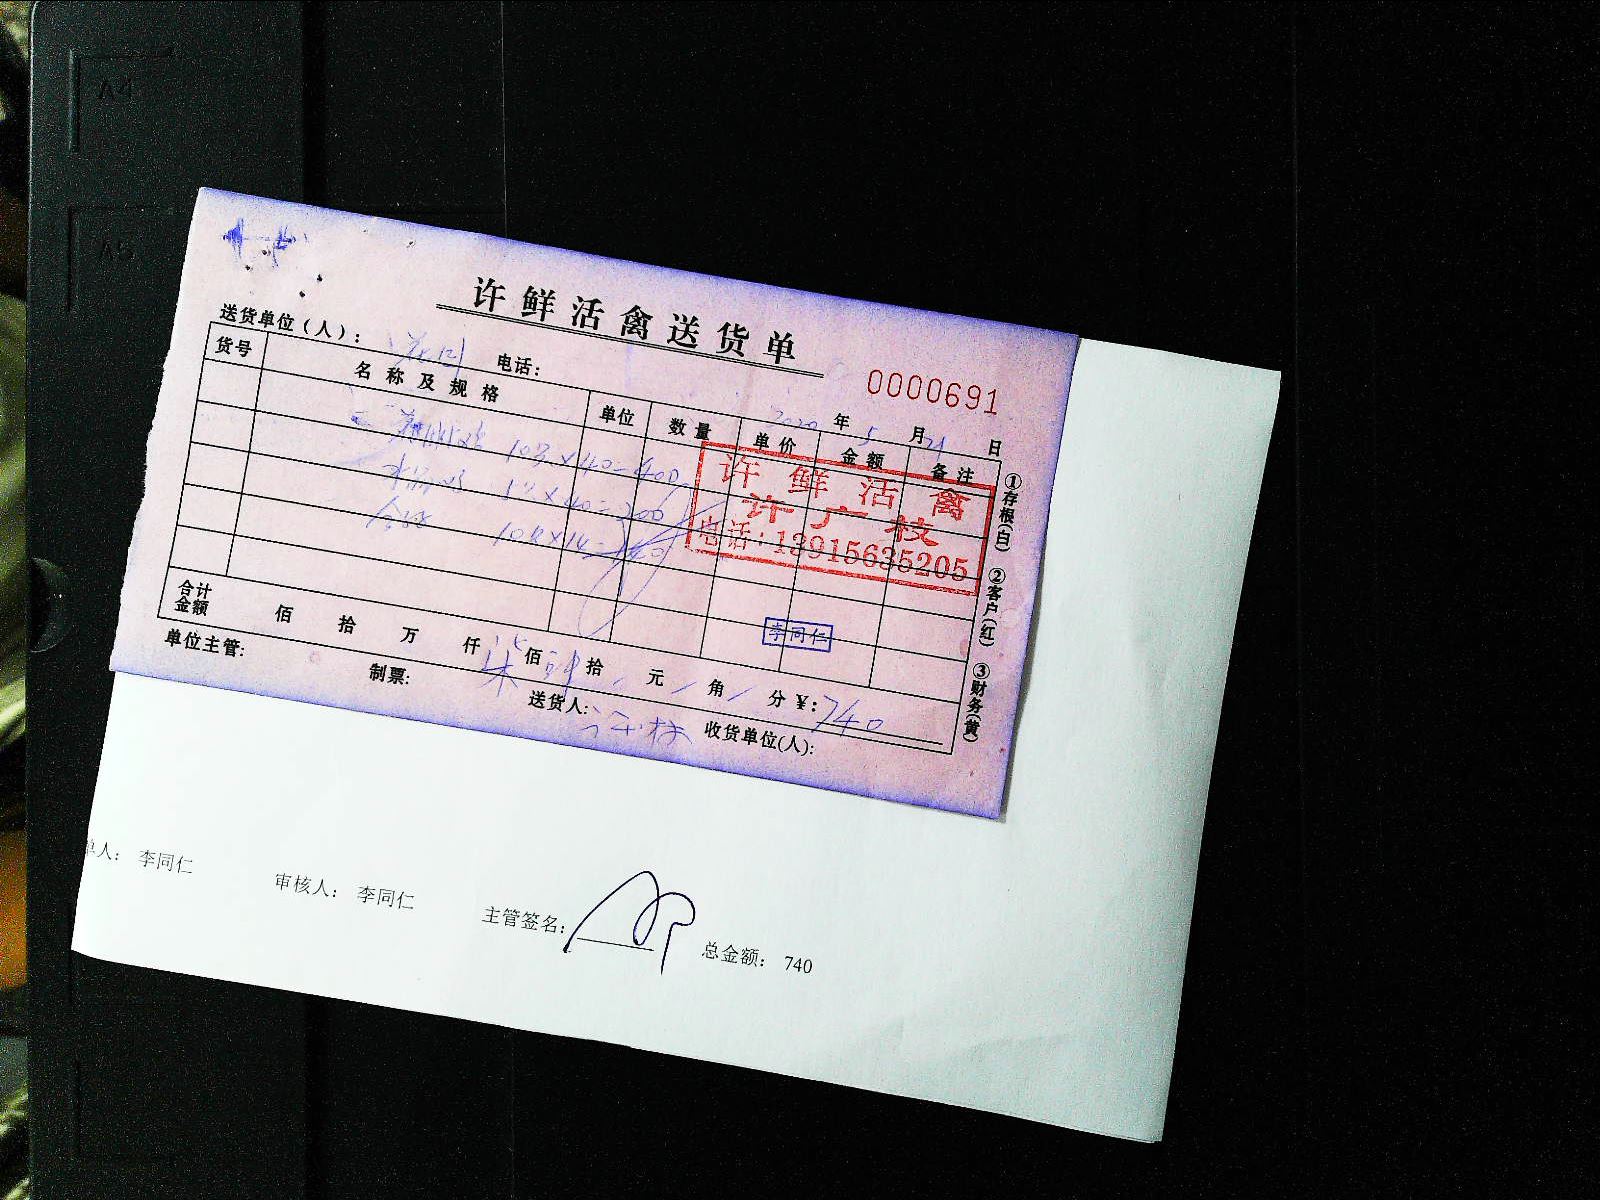 A4
A5
许鲜活禽送货单
送货单位（人）： 电话：
0000691
2020 年 5 月 21 日
货号 名称及规格 单位 数量 单价 金额 备注
10只×40=400
5只×40=200
10×14=140
许鲜活禽
许广枝
电话：13915635205
李同仁
合计金额 佰 拾 万 仟 柒 佰 肆 拾 元 角 分 ￥：740
单位主管： 制票： 送货人： 收货单位(人)：
①存根(白) ②客户(红) ③财务(黄)
单人： 李同仁 审核人： 李同仁 主管签名： 总金额： 740